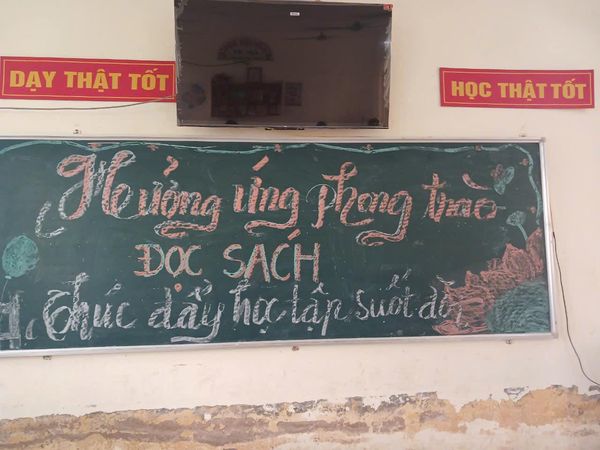 DẠY THẬT TỐT
HỌC THẬT TỐT
Hưởng ứng phong trào
ĐỌC SÁCH
Thúc đẩy học tập suốt đời